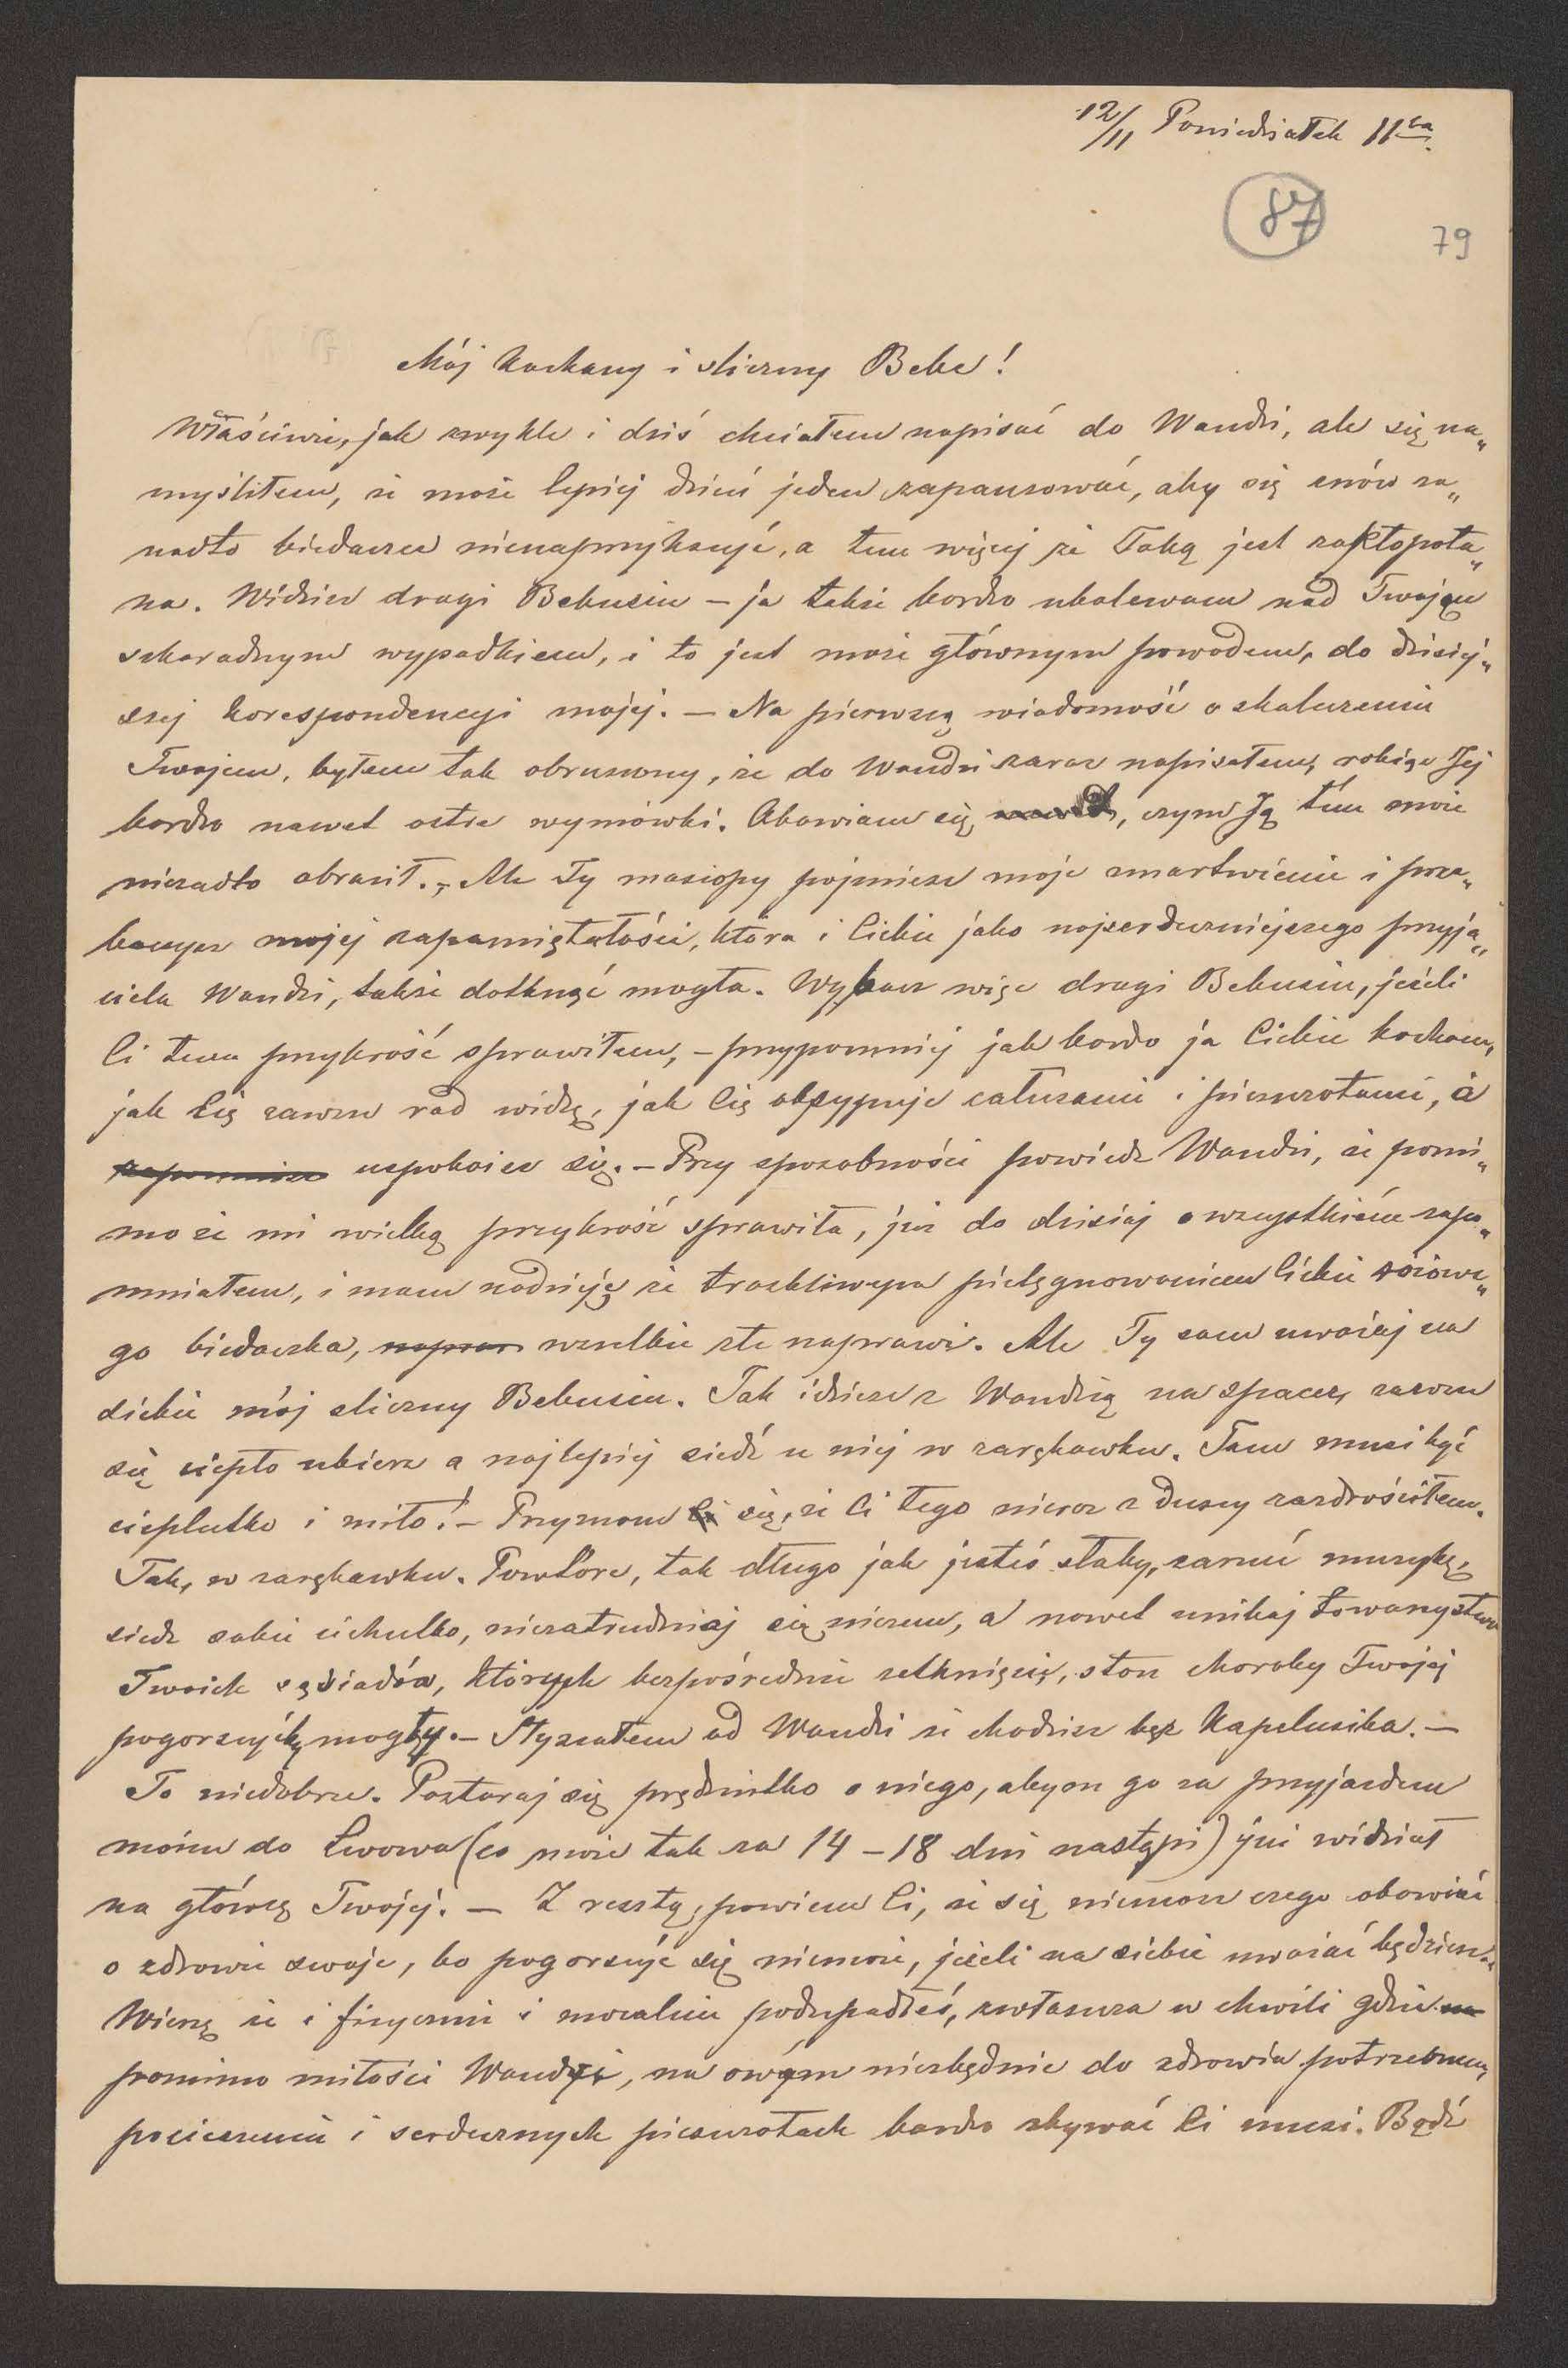 12/11 Poniedziałek 11ta
87
79
Mój kochany i śliczny Bebe!
Właściwie, jak zwykle i dziś chciałem napisać do Wandzi, ale się na„
myśliłem, że może lepiej dzień jeden zapauzować, aby się znów za„
nadto biedaczce nienaprzykszyć, a tem więcej że Taką jest zakłopota„
na. Widzisz drogi Bebusiu – ja także bardzo ubolewam nad Twojem
szkaradnym wypadkiem, i to jest może głównym powodem, do dzisiej„
szej korespondencyi mojej. – Na pierwszą wiadomość o skaleczeniu
Twojem, byłem tak oburzony, że do Wandzi zaraz napisałem, robiąc Jej
bardzo nawet ostre wymówki. Obawiam się, czym Ją tém może
niezadto obraził. – Ale Ty masiopy pojmiesz moje zmartwienie i prze„
baczysz mojej zapamiętałości, która i Ciebie jako najserdeczniejszego przyja„
ciela Wandzi, także dotknąć mogła. Wybacz więc drogi Bebusiu, jeżeli
Ci tem przykrość sprawiłem, – przypomnij jak bardzo ja Ciebie kocham,
jak Cię zawsze rad widzę, jak Cię obsypuje całusami i pieszczotami, a
uspokoisz się. – Przy sposobności powiedz Wandzi, że pomi„
mo że mi wielką przykrość sprawiła, już do dzisiaj o wszystkiém zapo„
mniałem, i mam nadzieję że troskliwym pielęgnowaniem Ciebie różowe„
go biedaczka, wszelkie złe naprawi. Ale Ty sam uważaj na
siebie mój śliczny Bebusiu. Jak idziesz z Wandzią na spacer, zawsze
się ciepło ubierz a najlepiej siedź u niej w zarękawku. Tam musi być
cieplutko i miło! – Przyznam się, że Ci tego nieraz z duszy zazdrościłem.
Tak, w zarękawku. Powtóre, tak długo jak jesteś słaby, zarzuć muzykę,
siedz sobie cichutko, niezatrudniaj się niczem, a nawet unikaj towarzystwa
Twoich sąsiadów, których bezpośrednie zetknięcie, stan choroby Twojej
pogorszyćby mogły. – Słyszałem od Wandzi że chodzisz bez kapelusika. –
To niedobrze. Postaraj się prędziutko o niego, abym go za przyjazdem
moim do Lwowa (co może tak za 14 – 18 dni nastąpi) już widział
na główcę Twojej. – Z resztą, powiem Ci, że się niemasz czego obawiać
o zdrowie swoje, bo pogorszyć się niemoże, jeżeli na siebie uważać będziesz.
Wierzę że i fizycznie i moralnie podupadłeś, zwłaszcza w chwili gdzie
pomimo miłości Wandzi, na owém niezbędnie do zdrowia potrzebnem,
pocieszeniu i serdecznych pieszczotach bardzo zbywać Ci musi. Bądź